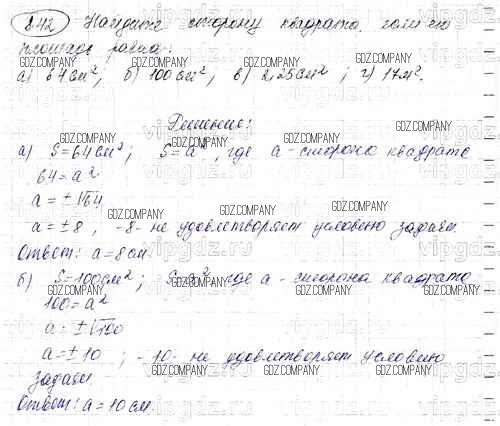 842 Найдите сторону квадрата, если его
площадь равна:
а) 64 см²; б) 100 см²; в) 2,25 см²; г) 17 м².
Решение:
а) S = 64 см²; S = a², где a - сторона квадрата
64 = a²
a = ±√64
a = ±8, -8 - не удовлетворяет условию задачи.
Ответ: a = 8 см.
б) S = 100 см²; S = a², где a - сторона квадрата
100 = a²
a = ±√100
a = ±10; -10 - не удовлетворяет условию
задачи.
Ответ: a = 10 см.
GDZ.COMPANY
vipgdz.ru